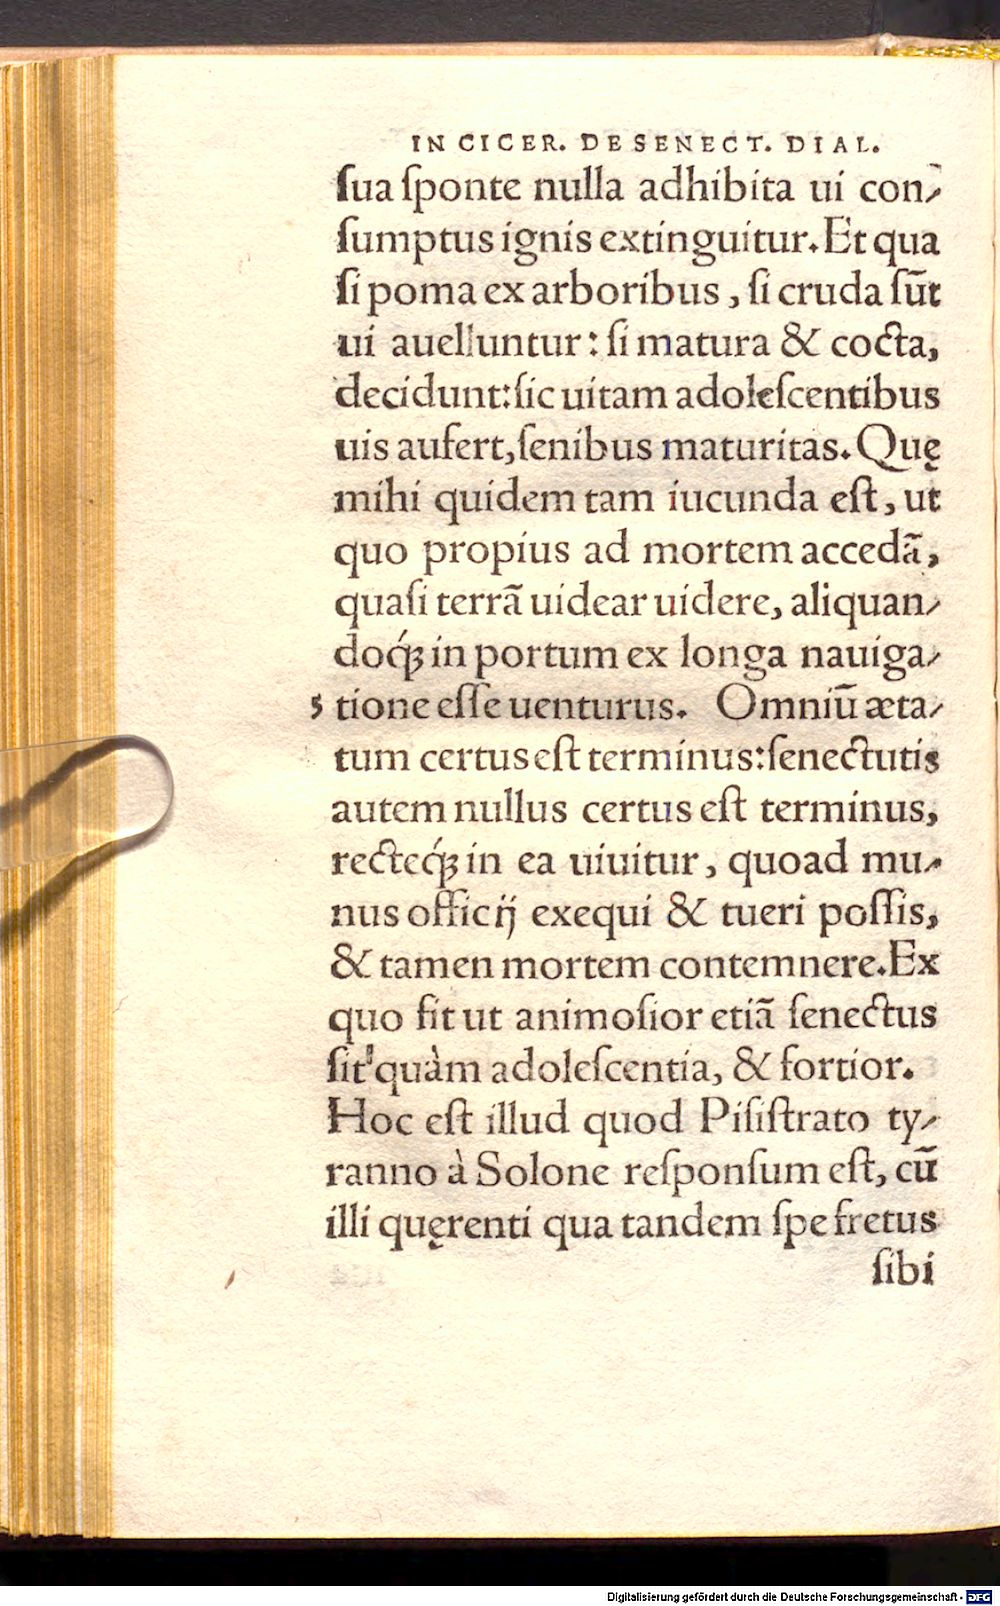 IN CICER. DE SENECT. DIAL.
ſua ſponte nulla adhibita ui con-
ſumptus ignis extinguitur. Et qua
ſi poma ex arboribus, ſi cruda ſūt
ui auelluntur: ſi matura & cocta,
decidunt: ſic uitam adoleſcentibus
uis aufert, ſenibus maturitas. Quę
mihi quidem tam iucunda eſt, ut
quo propius ad mortem accedā,
quaſi terrā uidear uidere, aliquan-
doq́ꝫ in portum ex longa nauiga-
5 tione eſſe uenturus. Omniū æta-
tum certus eſt terminus: ſenectutis
autem nullus certus eſt terminus,
recteq́ꝫ in ea uiuitur, quoad mu-
nus officij exequi & tueri poſſis,
& tamen mortem contemnere. Ex
quo fit ut animoſior etiā ſenectus
ſit quàm adoleſcentia, & fortior.
Hoc eſt illud quod Piſiſtrato ty-
ranno à Solone reſponſum eſt, cū
illi quęrenti qua tandem ſpe fretus
ſibi
Digitalisierung gefördert durch die Deutsche Forschungsgemeinschaft - DFG